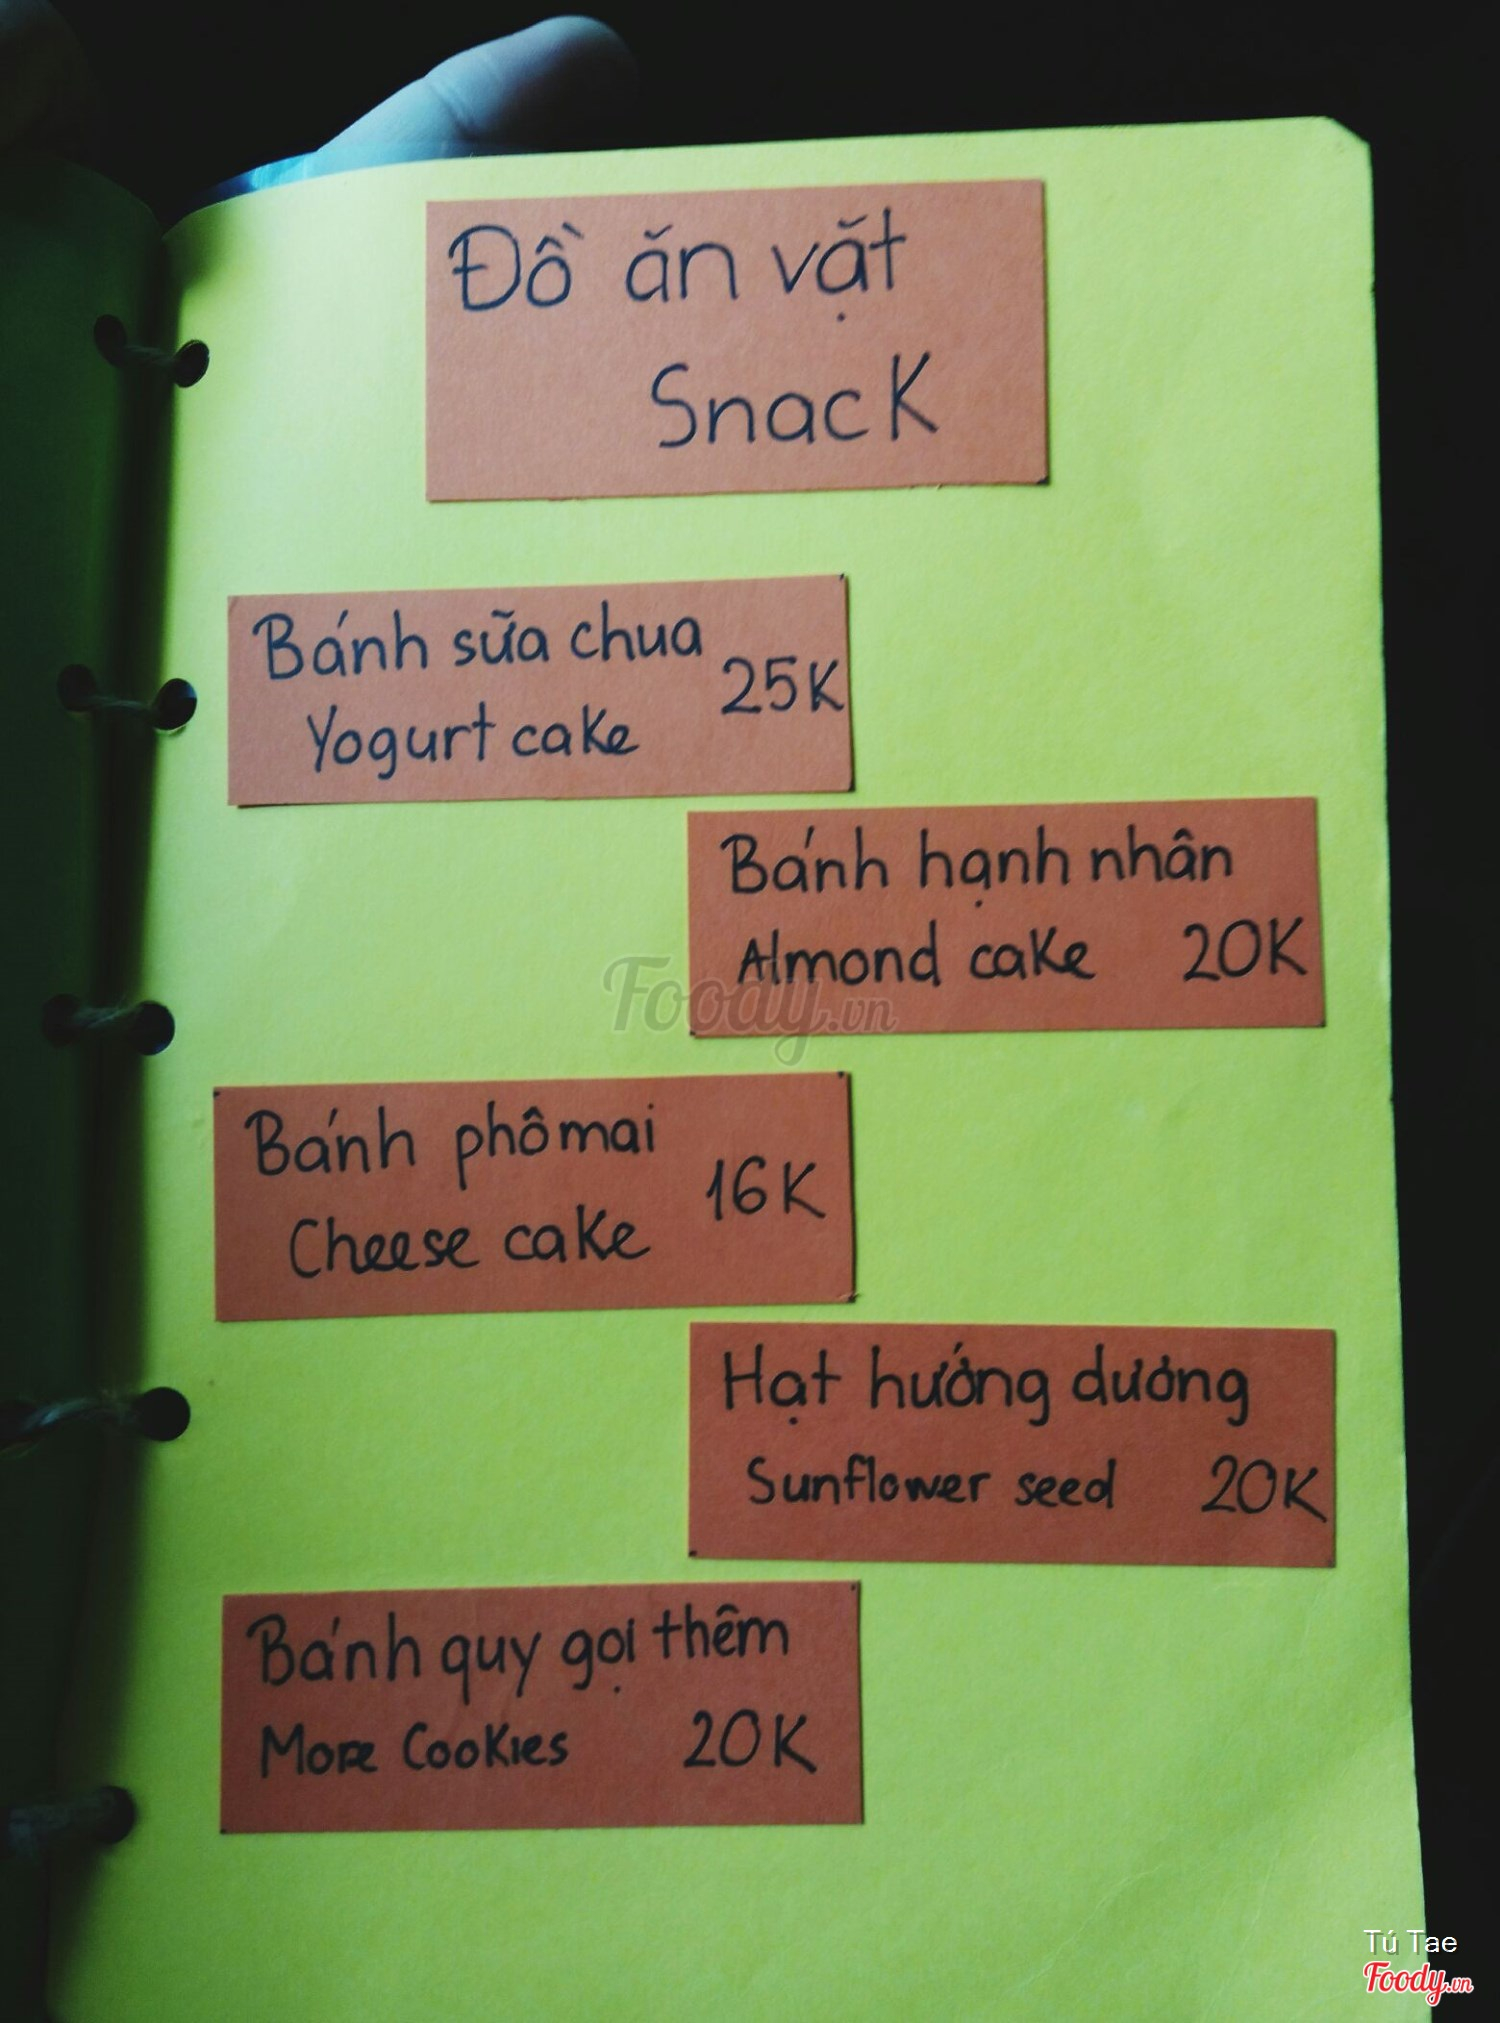 Đồ ăn vặt
Snack
Bánh sữa chua
25K
Yogurt cake
Bánh hạnh nhân
Almond cake 20K
Bánh phômai
16K
Cheese cake
Hạt hướng dương
Sunflower seed 20K
Bánh quy gọi thêm
More Cookies 20K
Foody.vn
Tú Tae
Foody.vn